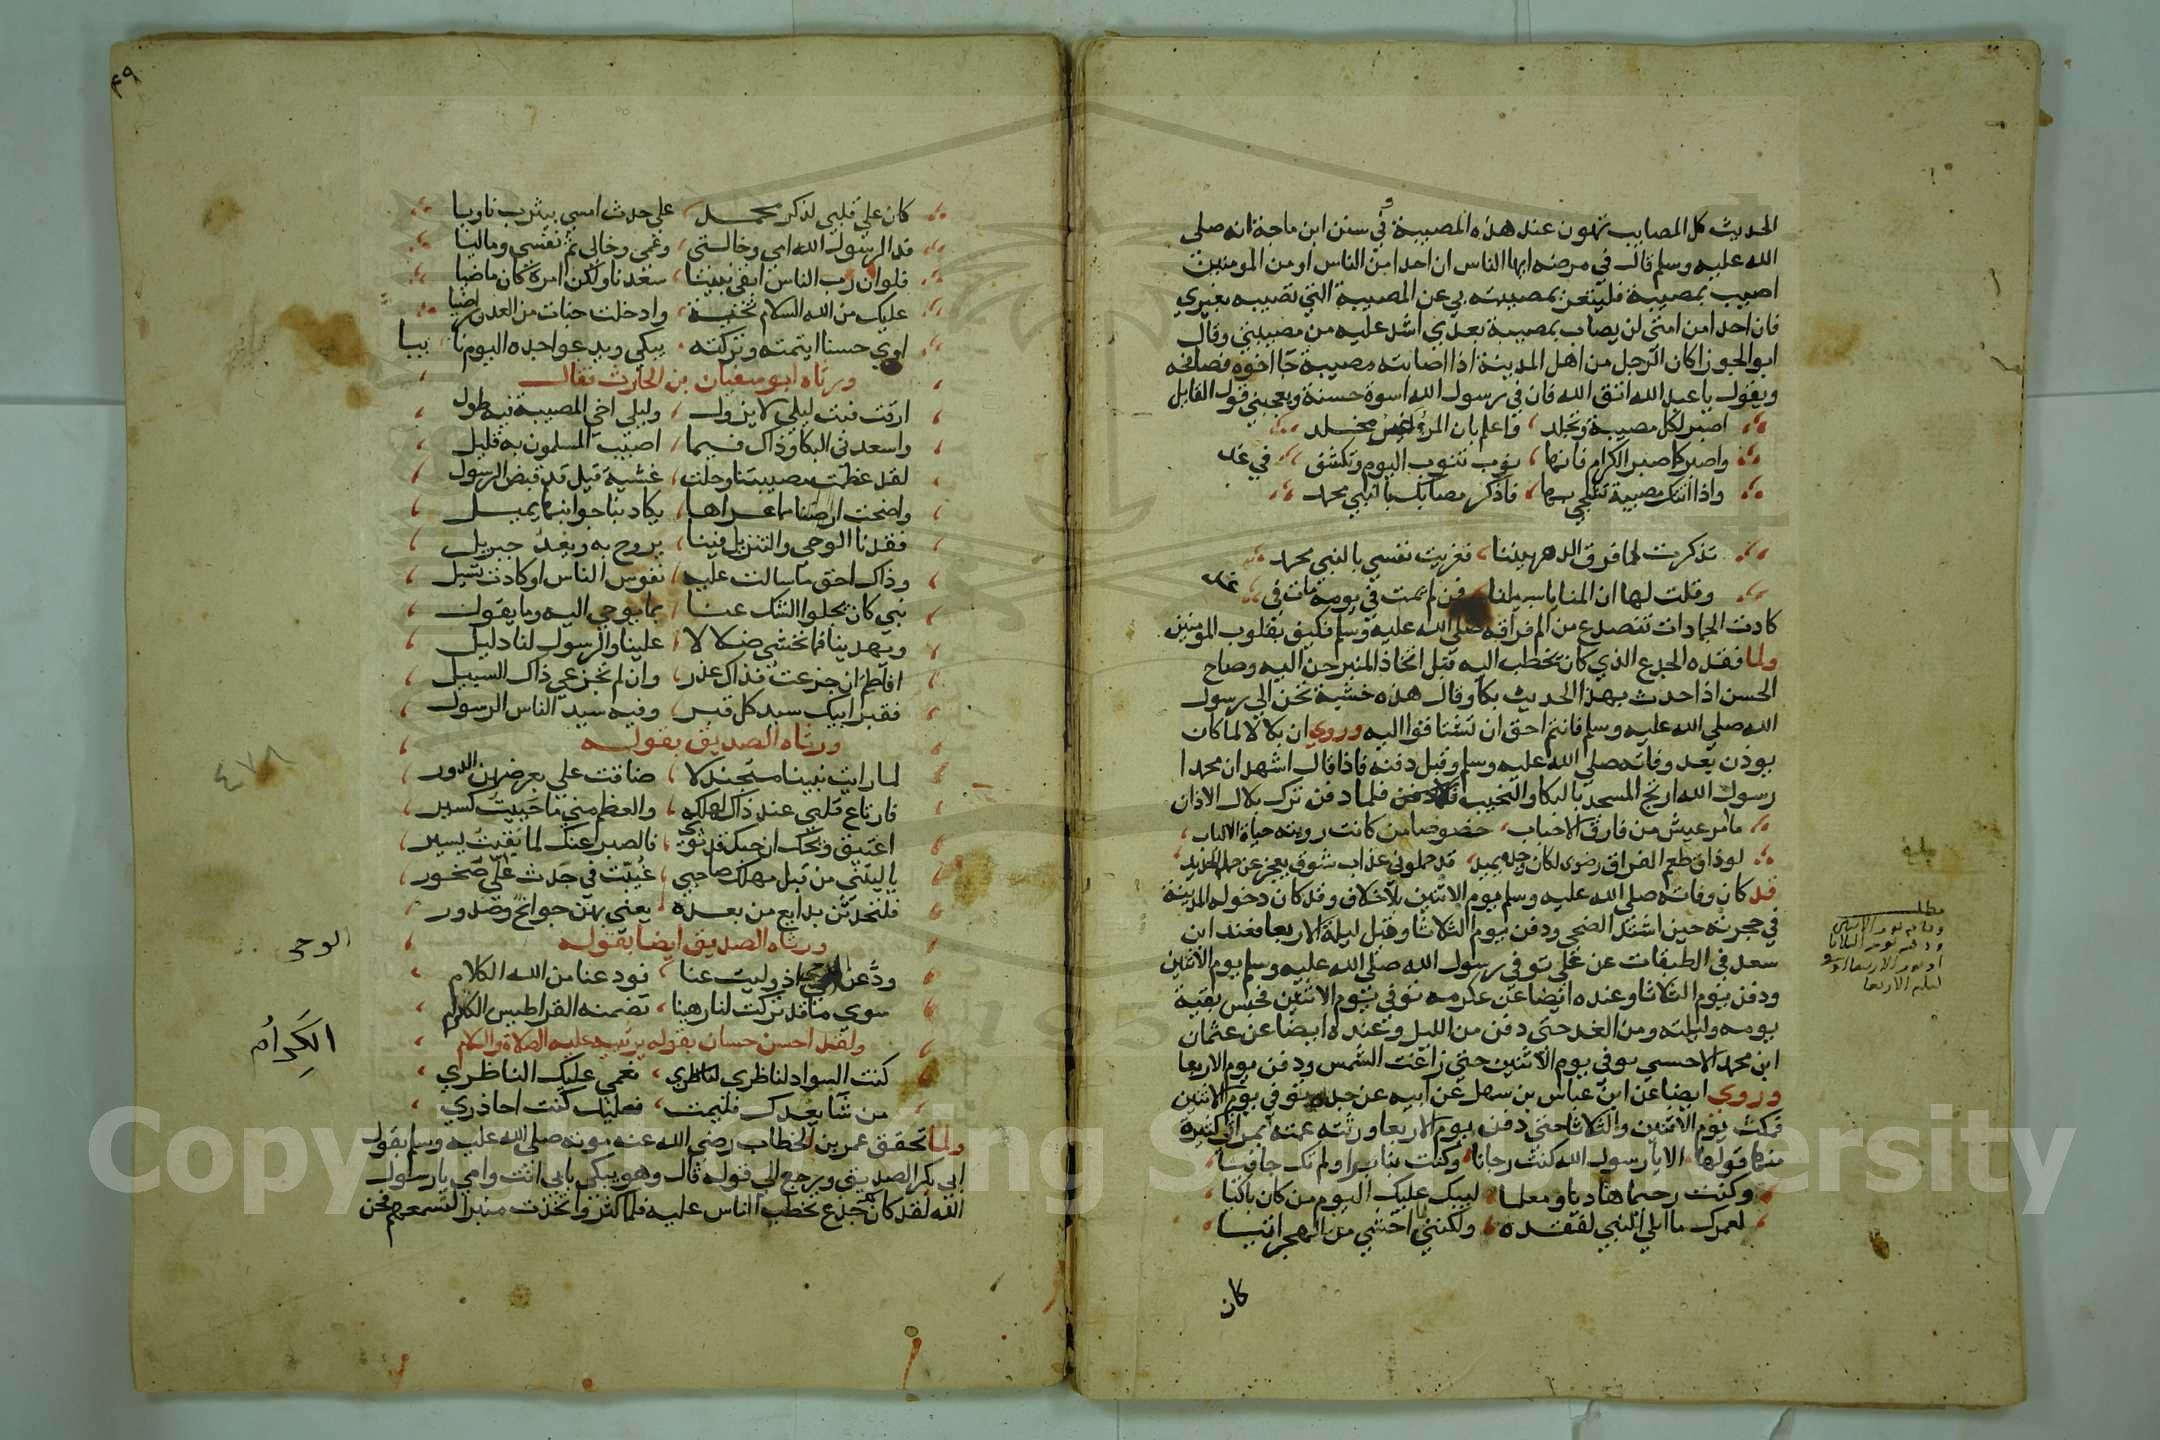 الحديث كل المصايب تهون عند هذه المصيبة وفي سنن ابن ماجة انه صلى
الله عليه وسلم قال في مرضه ايها الناس ان احدا من الناس او من المومنين
اصيب بمصيبة فليتعز بمصيبته بي عن المصيبة التي تصيبه بغيري
فان احدا من امتي لن يصاب بمصيبة بعدي اشد عليه من مصيبتي وقال
ابو الجوزا كان الرجل من اهل المدينة اذا اصابته مصيبة جا اخوه فصافحه
ويقول يا عبد الله اتق الله فان في رسول الله اسوة حسنة ويعجبني قول القايل
اصبر لكل مصيبة وتجلد واعلم بان المرؤ غير مخلد
واصبر كما صبر الكرام فانها نوب تنوب اليوم وتكشف في غد
واذا اتتك مصيبة تشجي بها فاذكر مصابك بالنبي محمد
تذكرت لما فرق الدهر بيننا فعزيت نفسي بالنبي محمد
وقلت لها ان المنايا سبيلنا فمن لم يمت في يومه مات في غد
كادت الجمادات تتصدع من الم فراقه صلى الله عليه وسلم فكيف بقلوب المومنين
ولما فقده الجدع الذي كان يخطب اليه قبل اتخاذ المنبر حن اليه وصاح
الحسن اذا حدث بهذا الحديث بكا وقال هذه خشبة تحن الى رسول
الله صلي الله عليه وسلم فانتم احق ان تشتاقوا اليه وروي ان بلالا لما كان
يوذن بعد وفاته صلي الله عليه وسلم وقبل دفنه فاذا قال اشهد ان محمدا
رسول الله ارتج المسجد بالبكا والنحيب فلما دفن ترك بلال الاذان
ما امر عيش من فارق الاحباب خصوصا من كانت رويته حياة الالباب
لو ذاق طعم الفراق رضوى لكان من وجده يميد قد حملوني عذاب شوق يعجز عن حمله الحديد
قد كان وفاته صلى الله عليه وسلم يوم الاثنين بلا خلاف وقد كان دخوله المدينة
في هجرته حين اشتد الضحى ودفن يوم الثلاثا وقيل ليلة الاربعا فعند ابن
سعد في الطبقات عن علي توفي رسول الله صلى الله عليه وسلم يوم الاثنين
ودفن يوم الثلاثا وعنده ايضا عن عكرمه توفي يوم الاثنين فحبس بقية
يومه وليلته ومن الغد حتى دفن من الليل وعنده ايضا عن عثمان
ابن محمد الاحنسي توفي يوم الاثنين حين زاغت الشمس ودفن يوم الاربعا
وروي ايضا عن ابن عباس بن سهل عن ابيه عن جده توفي يوم الاثنين
فمكث يوم الاثنين والثلاثا حتى دفن يوم الاربعا ورثته عمته بمراثي كثيرة
منها قولها الا يا رسول الله كنت رجانا وكنت بنا برا ولم تك جافيا
وكنت رحيما هاديا ومعلما ليبك عليك اليوم من كان باكيا
لعمرك ما ابكي النبي لفقده ولكنني اخشي من الهجر اتيا
كان
مطلب
وفاته يوم الاثنين
ودفنه يوم الثلاثا
ليلة الاربعا
٤٩
كان علي قلبي لذكر محمد على جدث امسى بيثرب ثاويا
فدا لرسول الله امي وخالتي وعمي وخالي ثم نفسي وماليا
فلو ان رب الناس ابقى نبينا سعدنا ولكن امره كان ماضيا
عليك من الله السلام تحية وادخلت جنات من العدن راضيا
اري حسنا ايتمته وتركته يبكي ويدعو اجده اليوم نا ييا
ورثاه ابو سفيان بن الحارث فقال
ارقت فبت ليلي لا يزول وليل اخي المصيبة فيه طول
واسعدني البكا وذاك فيما اصيب المسلمون به قليل
لقد عظمت مصيبتنا وجلت عشية قيل قد قبض الرسول
واضحت ارضنا مما عراها يكاد بنا جوانبها يميل
فقدنا الوحي والتنزيل فينا يروح به ويغدو جبريل
وذاك احق ما سالت عليه نفوس الناس او كادت تسيل
نبي كان يجلوا الشك عنا بما يوحي اليه وما يقول
ويهدينا فما نخشي ضلالا علينا والرسول لنا دليل
افاطم ان جزعت فذاك عذر وان لم تجزعي ذاك السبيل
فقبر ابيك سيد كل قبر وفيه سيد الناس الرسول
ورثاه الصديق بقوله
لما رايت نبينا متجندلا ضاقت علي بعرضهن الدور
فارتاع قلبي عند ذاك لهلكه والعظم مني ما حييت كسير
اعتيق ويحك ان حبك قد ثوى فالصبر عنك لما بقيت يسير
يا ليتني من قبل مهلك صاحبي غيبت في جدث علي صخور
فلتحدثن بدايع من بعده يعني بهن جوانح وصدور
ورثاه الصديق ايضا بقوله
ودعنا الوحي اذ وليت عنا فودعنا من الله الكلام
سوى ما قد تركت لنا رهينا تضمنه القراطيس الكرام
ولقد احسن حسان بقوله يرثيه عليه الصلاة والسلام
كنت السواد لناظري فعمي عليك الناظري
من شا بعدك فليمت فعليك كنت احاذري
ولما تحقق عمر بن الخطاب رضي الله عنه موته صلى الله عليه وسلم بقول
ابي بكر الصديق ورجع الى قوله قال وهو يبكي بابي انت وامي يا رسول
الله لقد كان جدع تخطب الناس عليه فلما كثروا اتخذت منبرا لتسمعهم فحن
٤٧٨
الوحي
الكَرِامُ
Copyright © King Saud University
1957